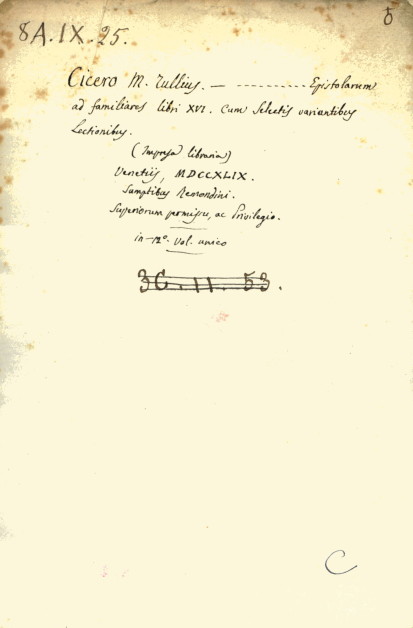 8A.IX.25.
Cicero M. Tullius. — ---------- Epistolarum
ad familiares libri XVI. Cum Selectis variantibus
Lectionibus.
(Impresa libraria)
Venetiis, MDCCXLIX.
Sumptibus Remondini.
Superiorum permissu, ac Privilegio.
in-12º. vol. unico
3C.11.53.
C